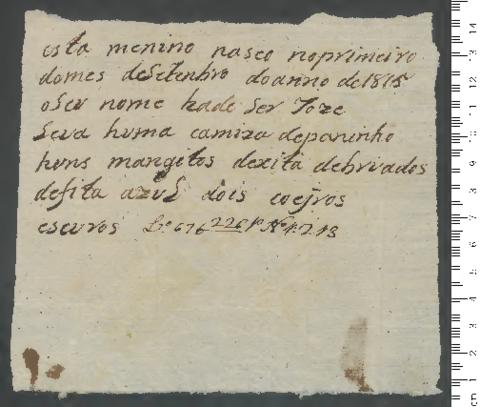 esta menino naseo noprimeiro
domes deSetenbro doanno de1815
oSeu nome hade Ser Joze
Leva huma camiza depaninho
huns mangitos dexita debriados
defita azuL dois coejros
escuros Lº 676 226 Nº 1213
14
13
12
11
10
9
8
7
6
5
4
3
2
1
cm